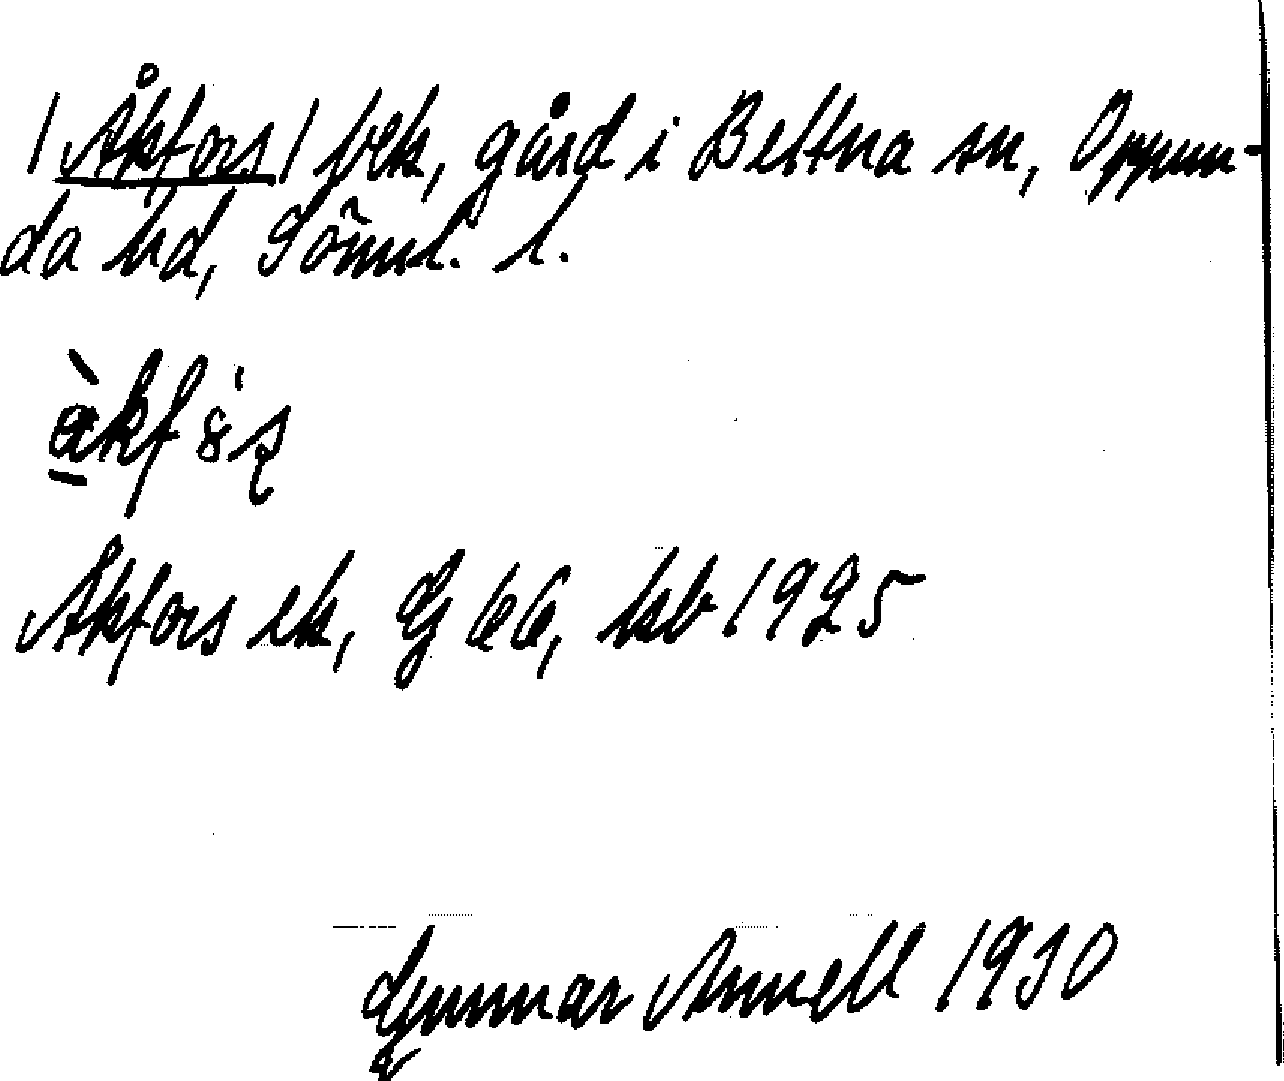 / Åkfors / bek, gård i Bettna sn, Oppun-
da hd, Söml. l.
Åkfors ek, G 66, kb 1925
Gunnar Annell 1930